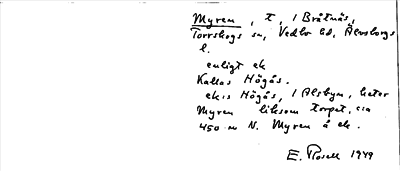 Myren, t, i Bråtnäs,
Torrskogs sn, Vedbo hd, Älvsborgs
l.
enligt ek
Kallas Högås.
ek:s Högås, i Alsbyn, heter
Myren liksom torpet, c:a
450 m N. Myren å ek.
E. Rosell 1949